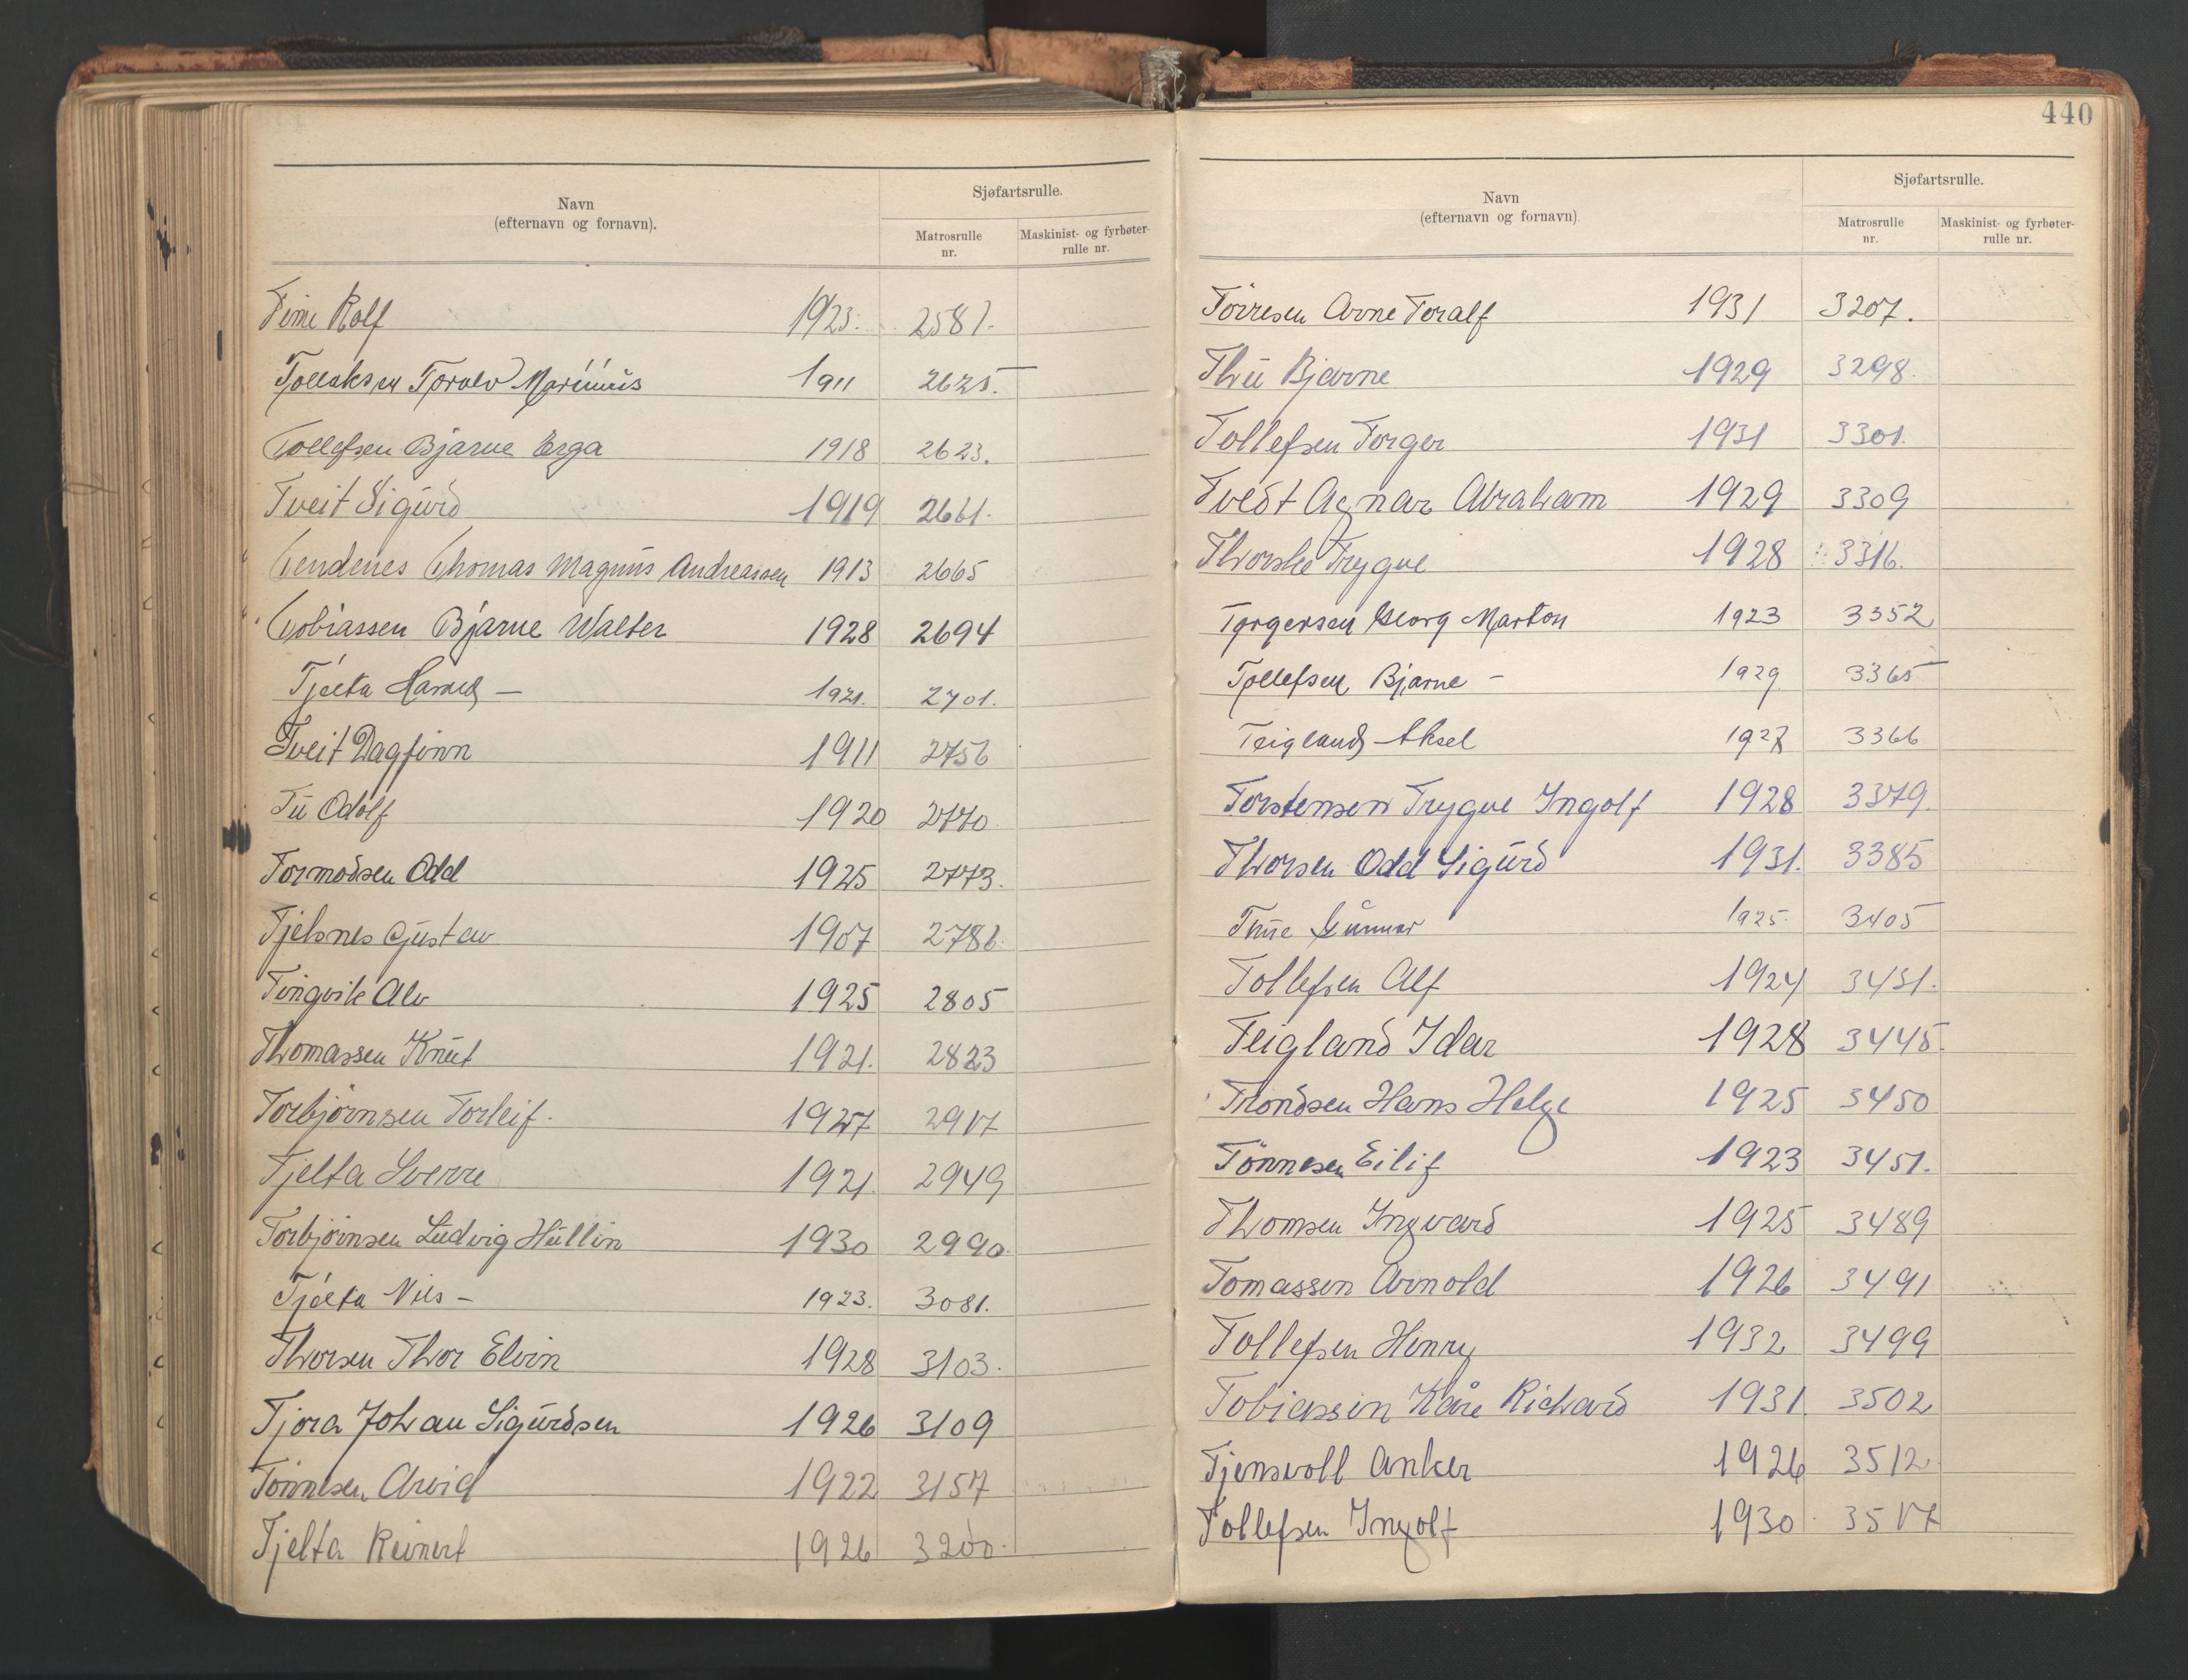 Navn
(efternavn og fornavn).
Sjøfartsrulle.
Matrosrulle nr.
Maskinist- og fyrbøter-rulle nr.
Time Rolf 1923. 2581.
Tollaksen Toralv Marinius 1911 2625.
Tollefsen Bjarne Erga 1918 2623.
Tveit Sigurd 1919 2661.
Tendenes Thomas Magnus Andreassen 1913 2665
Tobiassen Bjarne Walter 1928 2694
Tjelta Harald – 1921. 2701.
Tveit Dagfinn 1911 2756
Tu Odolf 1920 2770.
Tormodsen Odd 1925 2773.
Tjelsnes Gustav 1907 2786.
Tingvik Alv 1925 2805
Thomassen Knut 1921. 2823
Torbjørnsen Torleif. 1927 2917
Tjelta Sverre 1921. 2949
Torbjørnsen Ludvig Hullin 1930 2990.
Tjelta Nils – 1923. 3081.
Thorsen Thor Elvin 1928 3103.
Tjora Johan Sigurdsen 1926 3109
Tønnesen Arvid 1922 3157
Tjelta Reinert 1926 3200.
440
Navn
(efternavn og fornavn)
Sjøfartsrulle.
Matrosrulle nr.
Maskinist- og fyrbøter-rulle nr.
Tørresen Arne Toralf 1931 3207.
Thu Bjarne 1929 3298.
Tollefsen Torger 1931 3301.
Tvedt Agnar Abraham 1929 3309
Thorske Trygve 1928 3316.
Torgersen Georg Marton 1923 3352
Tollefsen Bjarne – 1929 3365
Teigland Aksel 1927 3366
Torstensen Trygve Ingolf 1928 3379.
Thorsen Odd Sigurd 1931. 3385
Thue Gunnar 1925. 3405
Tollefsen Alf 1924 3431.
Teigland Idar 1928 3445.
Trondsen Hans Helge 1925 3450
Tønnesen Eilif 1923 3451.
Thomsen Ingvard 1925 3489
Tomassen Arnold 1926 3491
Tollefsen Henry 1932 3499
Tobiassen Kåre Richard 1931. 3502
Tjensvoll Anker 1926 3512
Tollefsen Ingolf 1930. 3517